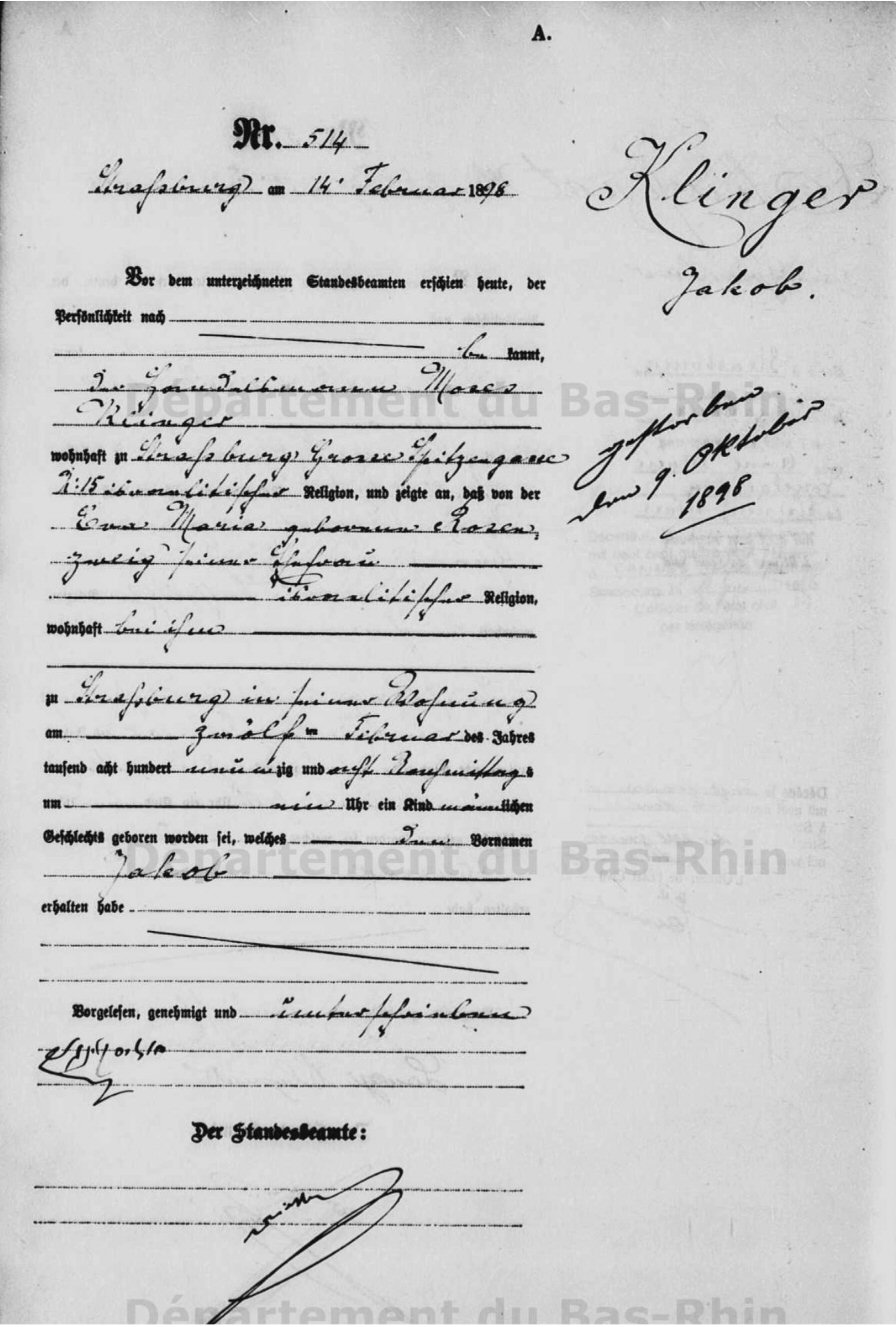 A.
Nr. 514
Straßburg am 14. Februar 1898
Klinger
Jakob.
Vor dem unterzeichneten Standesbeamten erschien heute, der
Persönlichkeit nach
be kannt,
der Handelsmann Moses
Klinger
gestorben
den 9. Oktober
1898
wohnhaft zu Straßburg Grosse Spitzengasse
N: 15 israelitischer Religion, und zeigte an, daß von der
Eva Maria geborenen Rosen,
zweig seiner Ehefrau
israelitischer Religion,
wohnhaft bei ihm
zu Straßburg in seiner Wohnung
am zwölften Februar des Jahres
tausend acht hundert neunzig und acht Nachmittags
um ein Uhr ein Kind männlichen
Geschlechts geboren worden sei, welches den Vornamen
Jakob
erhalten habe
Vorgelesen, genehmigt und unterschrieben
Der Standesbeamte:
Département du Bas-Rhin
Département du Bas-Rhin
Département du Bas-Rhin